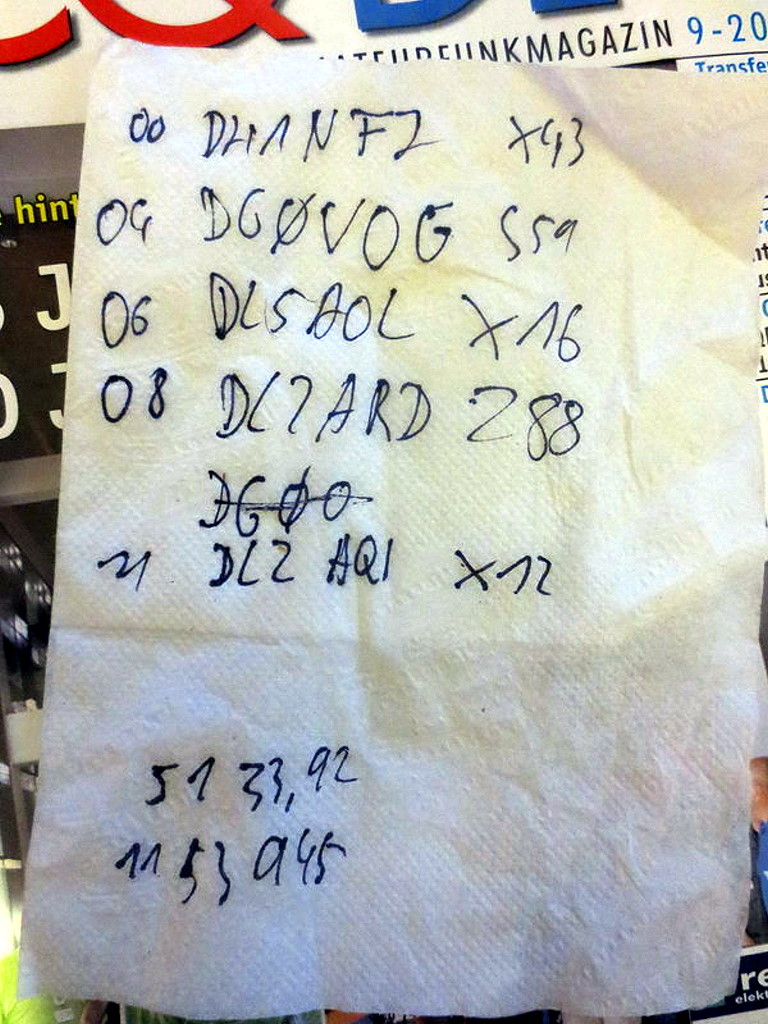 CQ DL
AMATEURFUNKMAGAZIN 9-20
Transfe
hint
00 DH1NFZ X43
04 DG0VOG S59
06 DL5AOL X16
08 DL2ARD Z88
DG00
21 DL2AQI X12
51 33,92
11 53 945
re
elekt